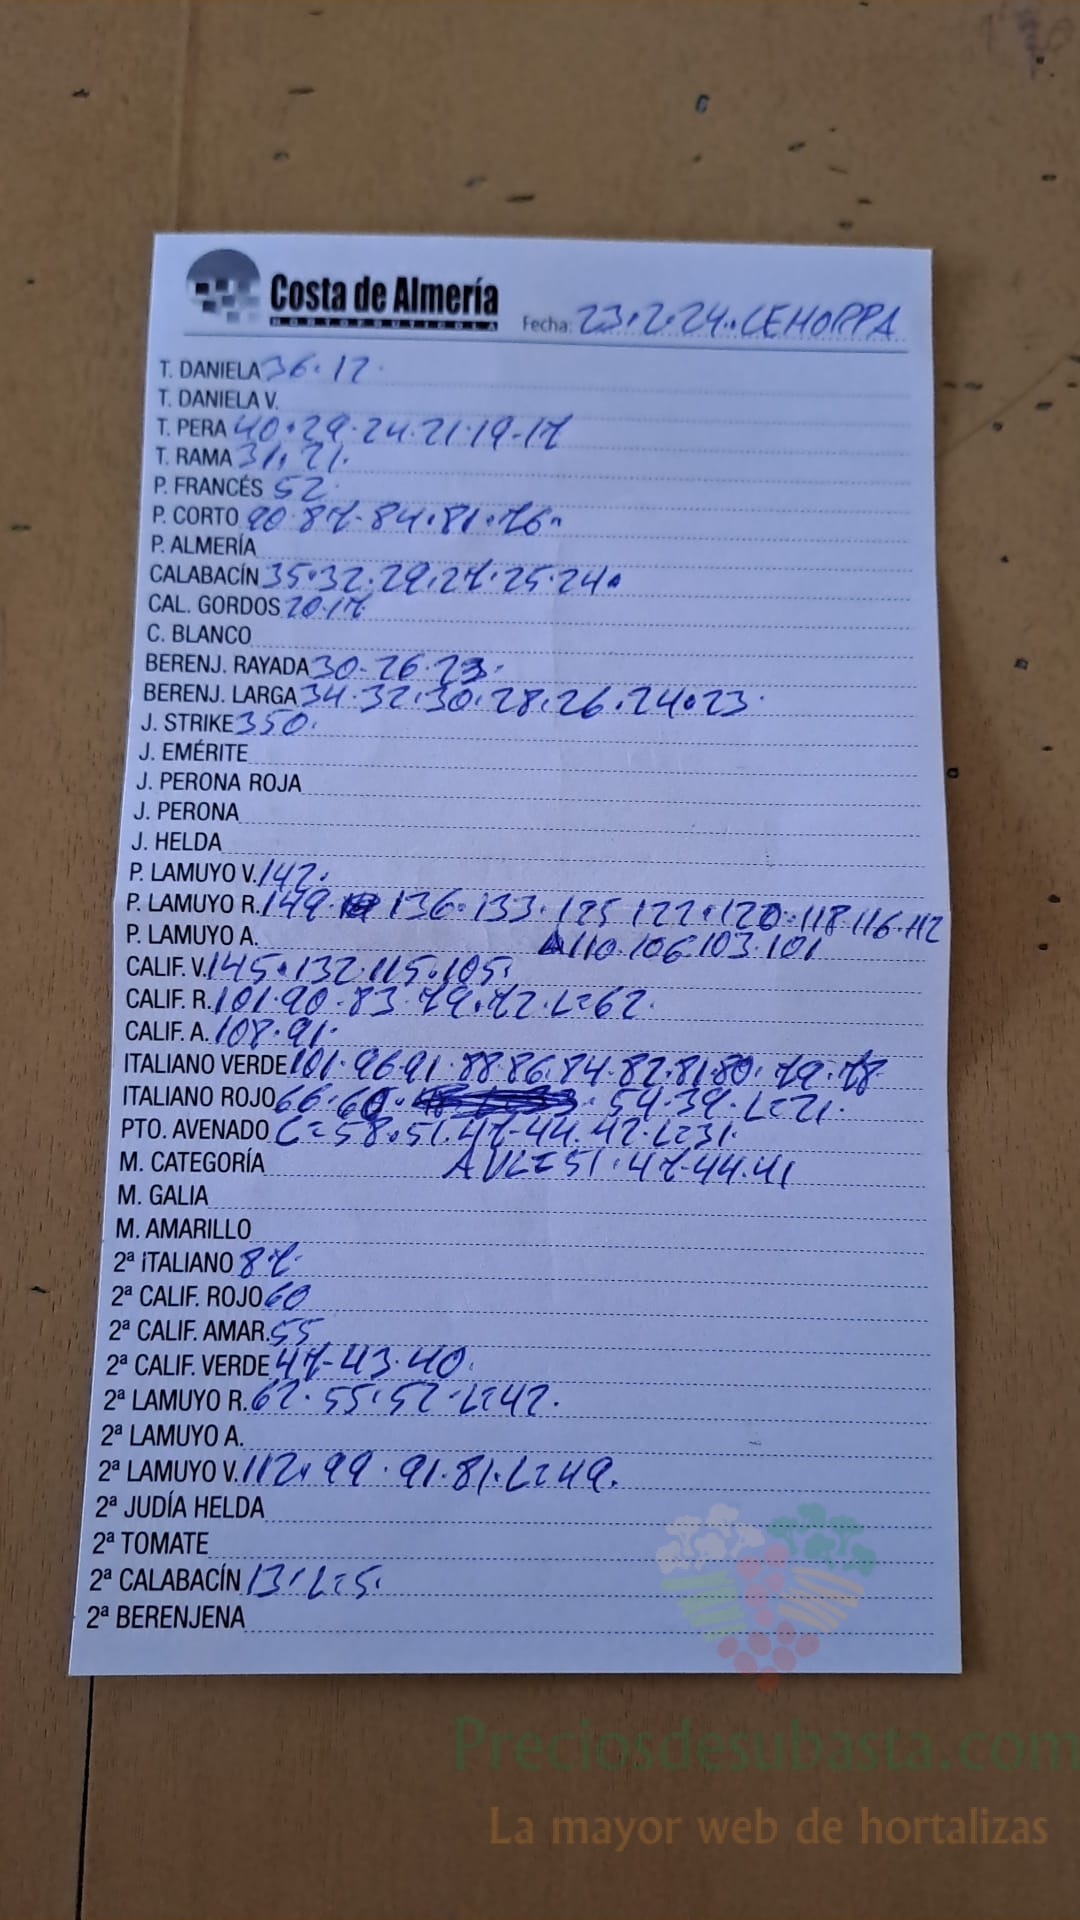 Costa de Almería
HORTOFRUTICOLA
Fecha: 23.2.24..CEHORPA
T. DANIELA 36.12.
T. DANIELA V.
T. PERA 40.29.24.21.19-17
T. RAMA 31.21.
P. FRANCÉS 52.
P. CORTO 90.87-84.81.76.
P. ALMERÍA
CALABACÍN 35.32.29.27.25.24.
CAL. GORDOS 20.17.
C. BLANCO
BERENJ. RAYADA 30-26.23.
BERENJ. LARGA 34.32.30.28.26.24.23.
J. STRIKE 350.
J. EMÉRITE
J. PERONA ROJA
J. PERONA
J. HELDA
P. LAMUYO V. 142.
P. LAMUYO R. 149. 136.133.125 122.120.118.116.112
P. LAMUYO A. 110.106.103.101
CALIF. V. 145.132.115.105.
CALIF. R. 101.90-83.79.72.L=62.
CALIF. A. 108.91.
ITALIANO VERDE 101.96.91.88.86.84.82.81.80.79.78
ITALIANO ROJO 66.60. 54.39.L=21.
PTO. AVENADO C=58.51.47-44.42.L=31.
M. CATEGORÍA AVL=51.47-44.41
M. GALIA
M. AMARILLO
2ª ITALIANO 87.
2ª CALIF. ROJO 60
2ª CALIF. AMAR. 55
2ª CALIF. VERDE 47-43.40.
2ª LAMUYO R. 62.55.52-L=42.
2ª LAMUYO A.
2ª LAMUYO V. 112.99.91.81.L=49.
2ª JUDÍA HELDA
2ª TOMATE
2ª CALABACÍN 13.L=5.
2ª BERENJENA
Preciosdesubasta.com
La mayor web de hortalizas